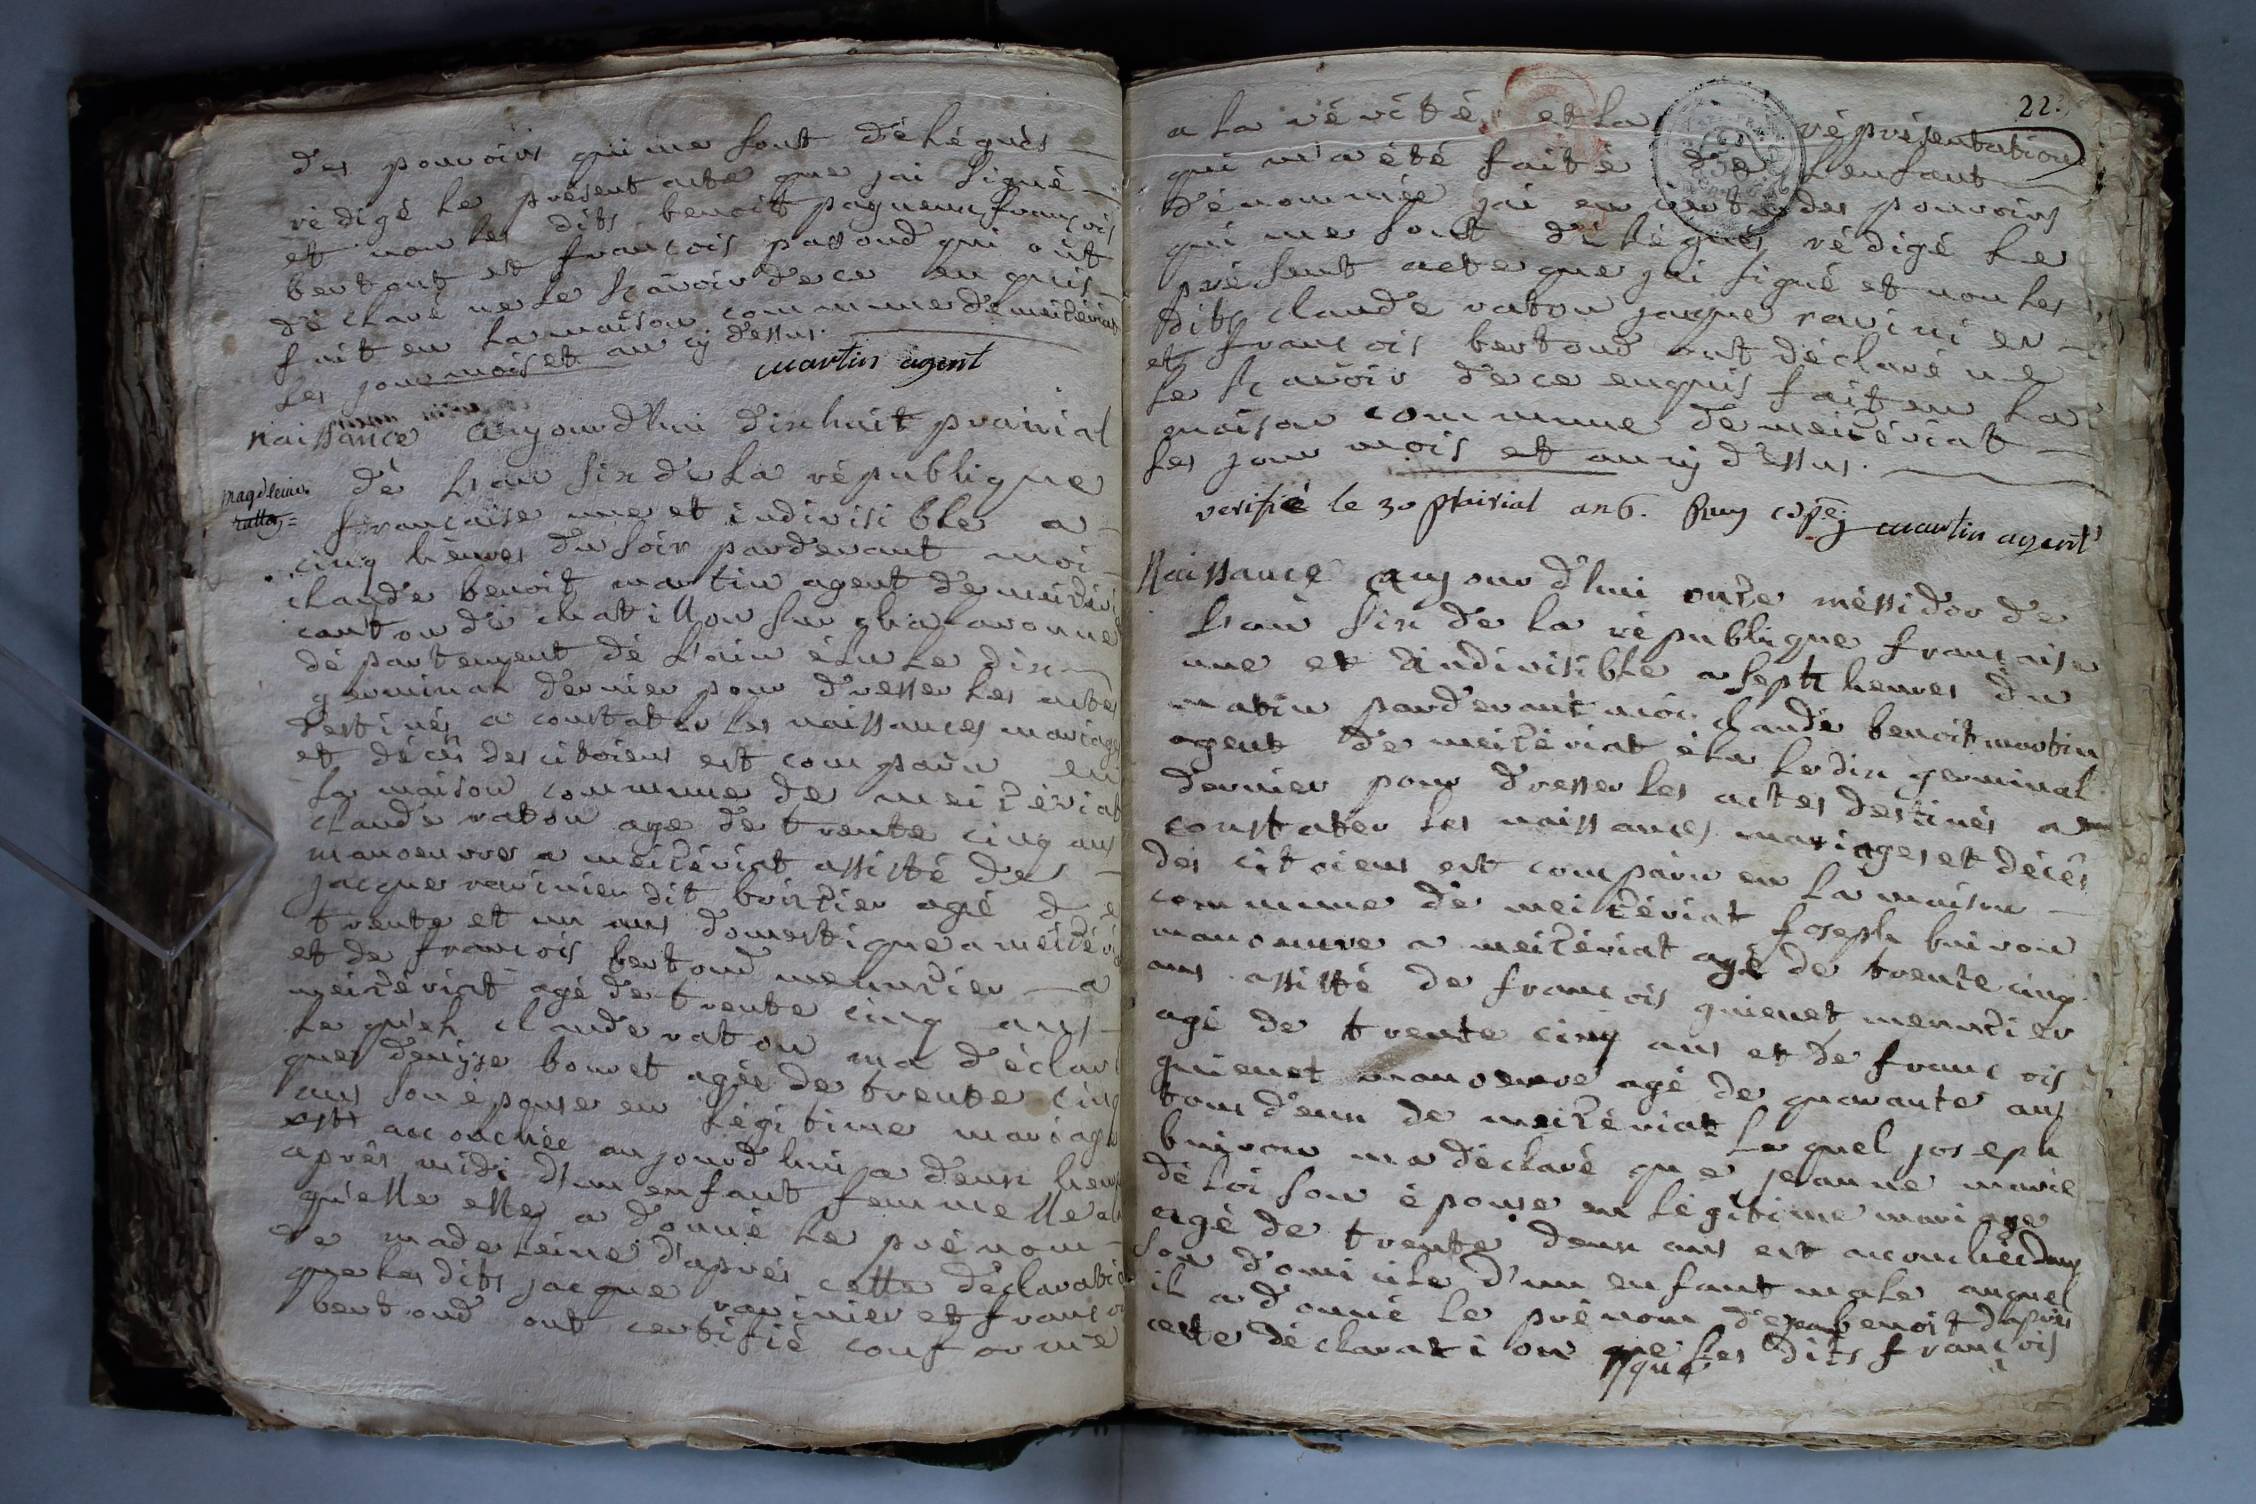 des pouvoirs qui me sont délégués
rédigé le présent acte que jai signé
et non les dits benoit pagneux françois
bertout et françois passoud qui ont
déclaré ne le sçavoir de ce enquis
fait en la maison commune de meizériat
les jour mois et an cy dessus.
martin agent
naissance aujourdhui dixhuit prairial
magdleine
ratton
dé l'an six de la république
française une et indivisible a
cinq héures du soir pardevant moi
claude benoit martin agent de meizéri
canton dé chatillon sur chalaronne
département dé l'ain élu le dix
germinal dernier pour dresser les actes
destinés a constater les naissances mariages
et décès des citoiens est comparu en
la maison commune de meizériat
claude raton age de trente cinq ans
manoeuvre a meizériat assisté de
jacque ravinier dit brissier agé de
trente et un ans domestique a meizéri
et de françois bertoud menuzier a
meizériat agé de trente cinq ans
lequel claude raton ma déclaré
que denyse bouvet agée de trente cinq
ans son épouse en légitime mariage
est accouchée aujourdhui a deux heur
après midi d'un enfant femmelle a
qu'elle elle a donné le prénom
de madeleine d'après cette déclaratio
que les dits jacque ravinier et franço
bertoud ont certifié conforme
22.
a la vérité et la réprésentation
qui m'a été faite de l'enfant
dénommée jai en vertu des pouvoirs
qui me sont délégués rédigé le
présent acte que jai signé et non les
dits claude raton jacque ravini er
et françois bertoud ont déclaré ne
le sçavoir de ce enquis fait en la
maison commune de meizériat
les jour mois et an cy dessus.
verifié le 30 prairial an 6. martin agent
Naissance aujourd'hui onze méssidor de
l'an six de la république française
une et indivisible a sept heures du
matin pardevant moi claude benoit martin
agent de meizériat élu le dix germinal
dernier pour dresser les actes destinés a
constater les naissances mariages et décès
des citoiens est comparu en la maison
commune de meizériat joseph buiron
manoeuvre a meizériat agé de trente cinq
ans assisté de françois guienet menuzier
agé de trente cinq ans et de franc ois
guienet manoeuvre agé de quarante ans
tous deux de meizériat lequel joseph
buiron ma déclaré que jeanne marie
déloi son épouse en légitime mariage
agé de trente deux ans est accouchée dans
son domicile d'un enfant male auquel
il a donné le prénom de jean benoit d'après
cette déclaration que les dits françois
que